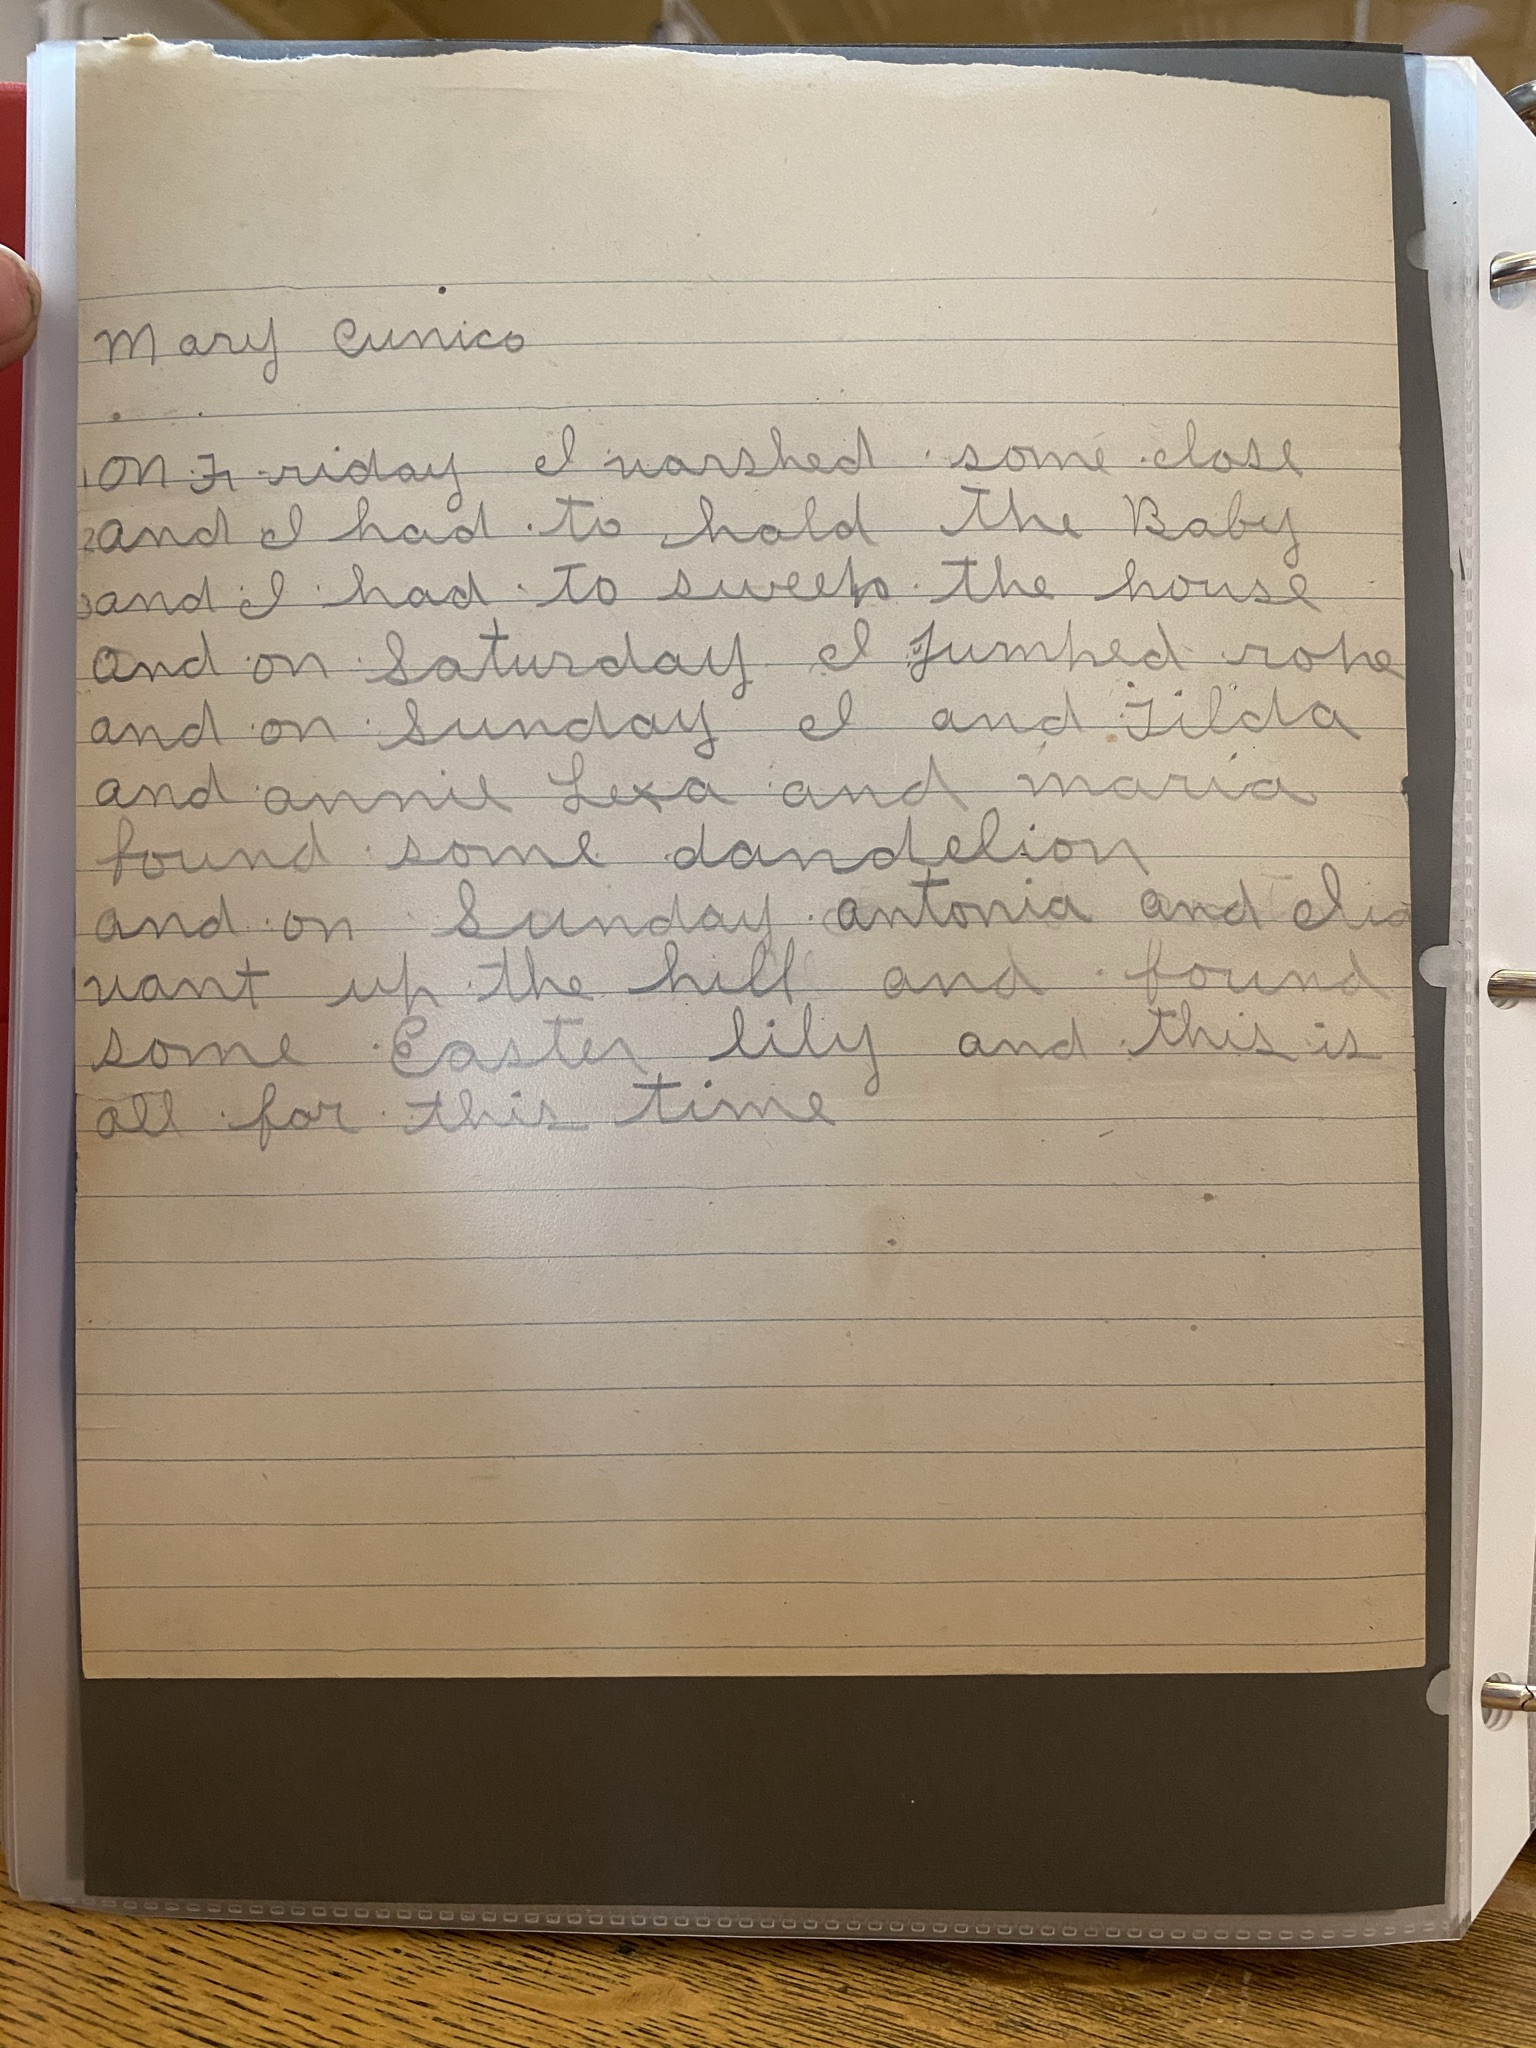 Mary Cunico
1 on Fr riday I warshed some close
2 and I had to hold the Baby
3 and I had to sweep the house
and on Saturday I Jumped rope
and on Sunday I and Tilda
and annie Lexa and maria
found some dandelion
and on Sunday antonia and
want up the hill and found
some Easter lily and this is
all for this time